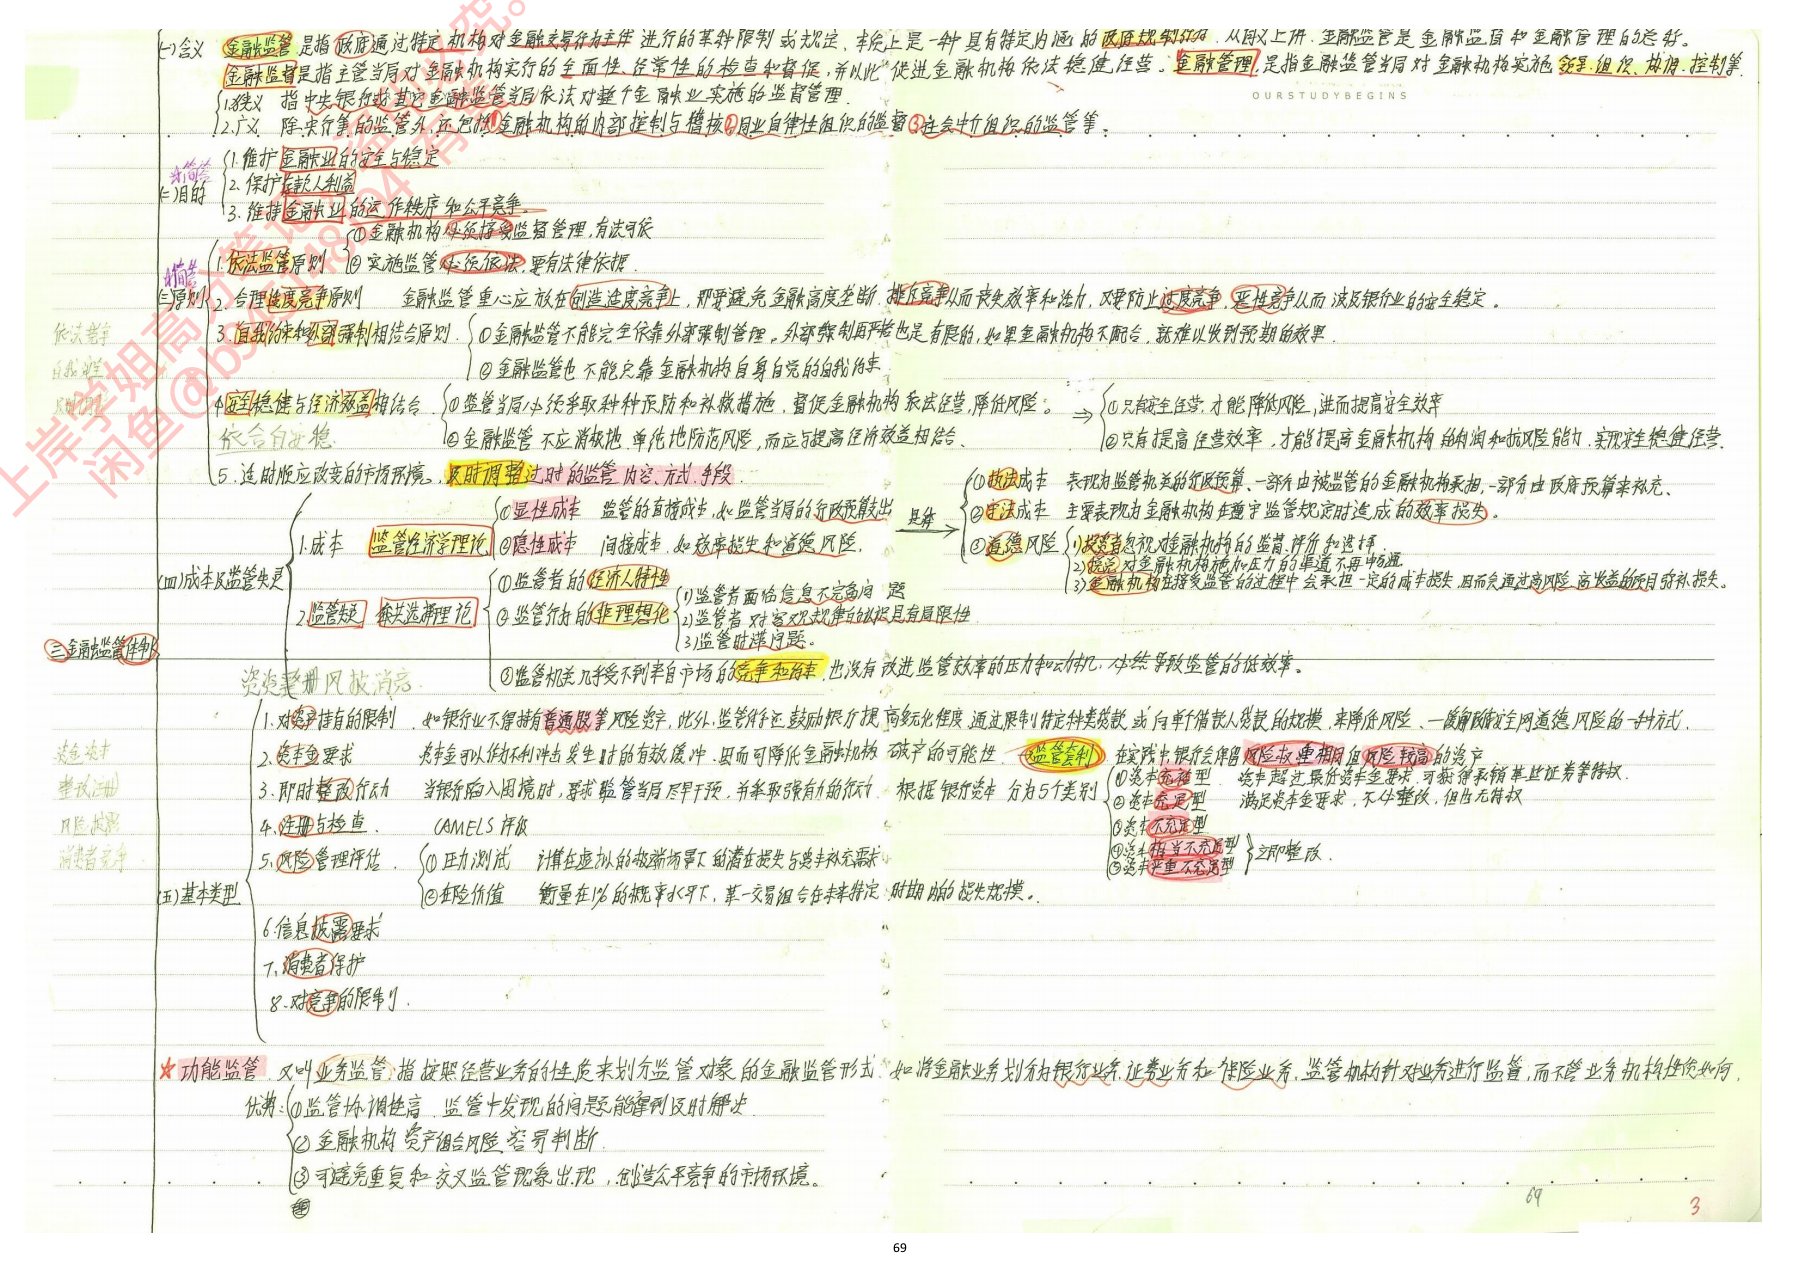 (一)含义 金融监管是指政府通过特定机构对金融交易行为主体进行的某种限制或规定,本质上是一种具有特定内涵的政府规制行为。从词义上讲,金融监管是金融监督和金融管理的总称。
金融监督是指主管当局对金融机构实行的全面性、经常性的检查和督促,并以此促进金融机构依法稳健经营。金融管理,是指金融监管当局对金融机构实施领导、组织、协调、控制等
OURSTUDYBEGINS
1.狭义 指中央银行或其它金融监管当局依法对整个金融业实施的监督管理.
2.广义 除央行等的监管外,还包括①金融机构的内部控制与稽核②同业自律性组织的监督③社会中介组织的监管等。
☆简答
(二)目的
1.维护金融业的安全与稳定
2.保护存款人利益
3.维持金融业的运作秩序和公平竞争。
☆简答
(三)原则
1.依法监管原则
①金融机构必须接受监督管理,有法可依
②实施监管必须依法,要有法律依据.
2.合理适度竞争原则 金融监管重心应放在创造适度竞争上,即要避免金融高度垄断,排斥竞争从而丧失效率和活力,又要防止过度竞争,恶性竞争从而波及银行业的安全稳定。
3.自我约束和外部强制相结合原则.
①金融监管不能完全依靠外部强制管理。外部强制再严格也是有限的,如果金融机构不配合,就难以收到预期的效果
②金融监管也不能只靠金融机构自身自觉的自我约束
依法竞争
自我
4.安全稳健与经济效益相结合
①监管当局必须采取种种预防和补救措施,督促金融机构依法经营,降低风险。
②金融监管不应消极地、单纯地防范风险,而应与提高经济效益相结合、
⇒
①只有安全经营,才能降低风险,进而提高安全效率
②只有提高经营效率,才能提高金融机构的利润和抗风险能力,实现安全稳健经营.
依合自安稳
5.适时顺应改变的市场环境。及时调整过时的监管内容、方式、手段.
(四)成本及监管失灵
1.成本 监管经济学理论
①显性成本 监管的直接成本,如监管当局的行政预算支出
②隐性成本 间接成本,如效率损失和道德风险.
具体
①执法成本 表现为监管机关的行政预算、一部分由被监管的金融机构承担,一部分由政府预算来补充、
②守法成本 主要表现为金融机构在遵守监管规定时造成的效率损失。
③道德风险
1)投资者忽视对金融机构的监督、评价和选择.
2)挽点对金融机构施加压力的渠道不再畅通
3)金融机构在接受监管的过程中会承担一定的成本损失,因而会通过高风险、高收益的项目弥补损失。
2.监管失灵 公共选择理论
①监管者的经济人特性
②监管行为的非理想化
1)监管者面临信息不完备问题
2)监管者对客观规律的认识具有局限性
3)监管时滞问题。
③监管机关几乎受不到来自市场的竞争和约束,也没有改进监管效率的压力和动机,必然导致监管的低效率。
三金融监管体制
资资整册风披消竞.
(五)基本类型
1.对资产持有的限制. 如银行业不得持有普通股等风险资产,此外,监管部门还鼓励银行提高多元化程度,通过限制特定种类贷款或向单个借款人贷款的规模,来降低风险、一般解决政府安全网道德风险的一种方式.
2.资本金要求 资本金可以作为不利冲击发生时的有效缓冲.因而可降低金融机构破产的可能性. 监管套利 在实践中银行会保留风险权重相同但风险较高的资产
3.即时整改行动 当银行陷入困境时,要求监管当局尽早干预,并采取强有力的行动. 根据银行资本分为5个类别
①资本充裕型. 资本超过银行资本金要求,可获得承销某些证券等特权.
②资本充足型 满足资本金要求,不必整改,但也无特权
③资本不充足型
④资本相当不充足型
⑤资本严重不充足型
立即整改.
4.注册与检查. CAMELS评级
5.风险管理评估.
①压力测试 计算在虚拟的极端场景下的潜在损失与资本补充需求
②在险价值 衡量在1%的概率水平下,某一交易组合在未来特定时期内的损失规模。
6.信息披露要求
7.消费者保护
8.对竞争的限制.
资金资本
整改注册
风险披露
消费者竞争
☆功能监管.又叫业务监管.指按照经营业务的性质来划分监管对象的金融监管形式.如将金融业务划分为银行业务、证券业务和保险业务,监管机构针对业务进行监督,而不管业务机构性质如何.
优势:①监管协调性高.监管中发现的问题能得到及时解决.
②金融机构资产组合风险容易判断.
③可避免重复和交叉监管现象出现,创造公平竞争的市场环境。
69
3
69